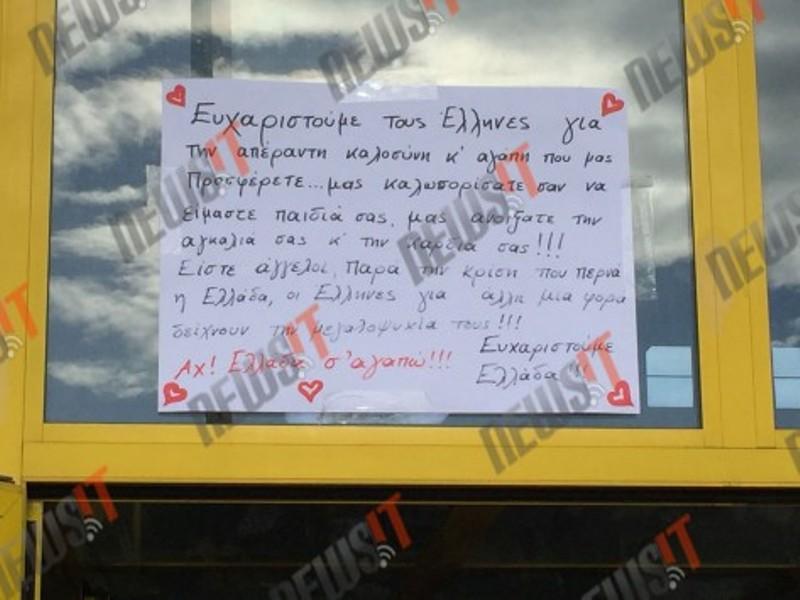 Ευχαριστούμε τους Έλληνες για
την απέραντη καλοσύνη κ' αγάπη που μας
Προσφέρετε... μας καλωσορίσατε σαν να
είμαστε παιδιά σας, μας ανοίξατε την
αγκαλιά σας κ' την καρδιά σας!!!
Είστε άγγελοι, Παρα την κρίση που περνά
η Ελλάδα, οι Έλληνες για άλλη μια φορα
δείχνουν την μεγαλοψυχία τους!!!
Αχ! Ελλάδα σ'αγαπώ!!!
Ευχαριστούμε
Ελλάδα!!!
NEWSIT